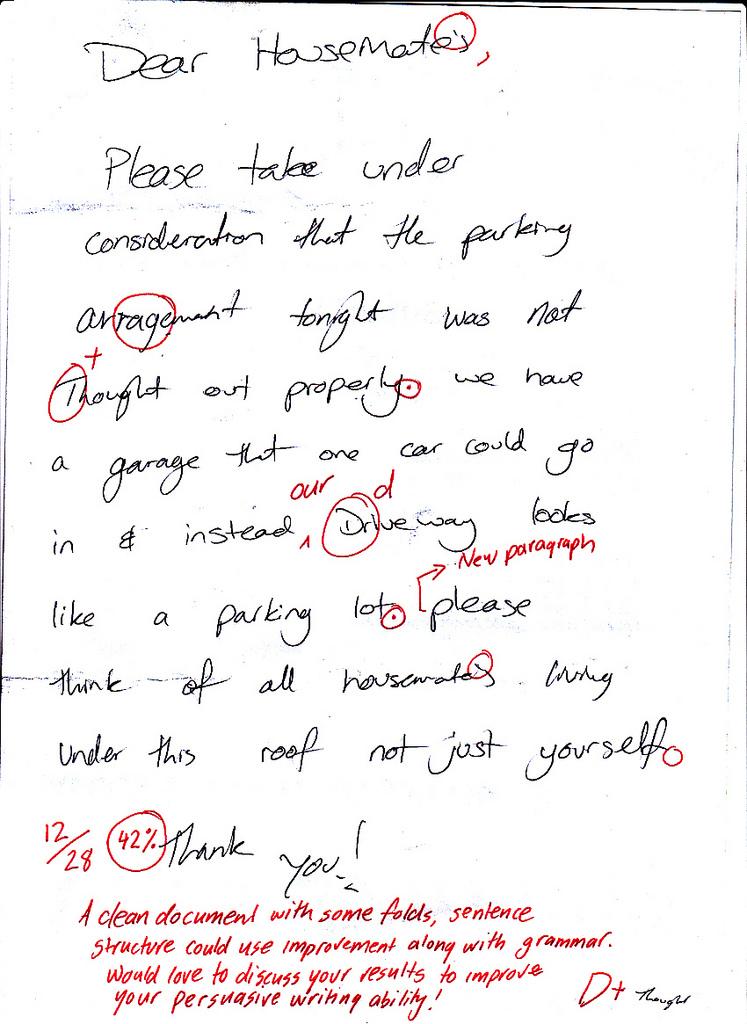 Dear Housemate's,
Please take under
consideration that the parking
arragement tonight was not
t
Thought out properly. we have
a garage that one car could go
our d
in & instead ^ Driveway looks
New paragraph
like a parking lot. please
think of all housemate's living
under this roof not just yourself.
12/28 42% Thank you!
A clean document with some folds, sentence
structure could use improvement along with grammar.
Would love to discuss your results to improve
your persuasive writing ability!
D+ Thought